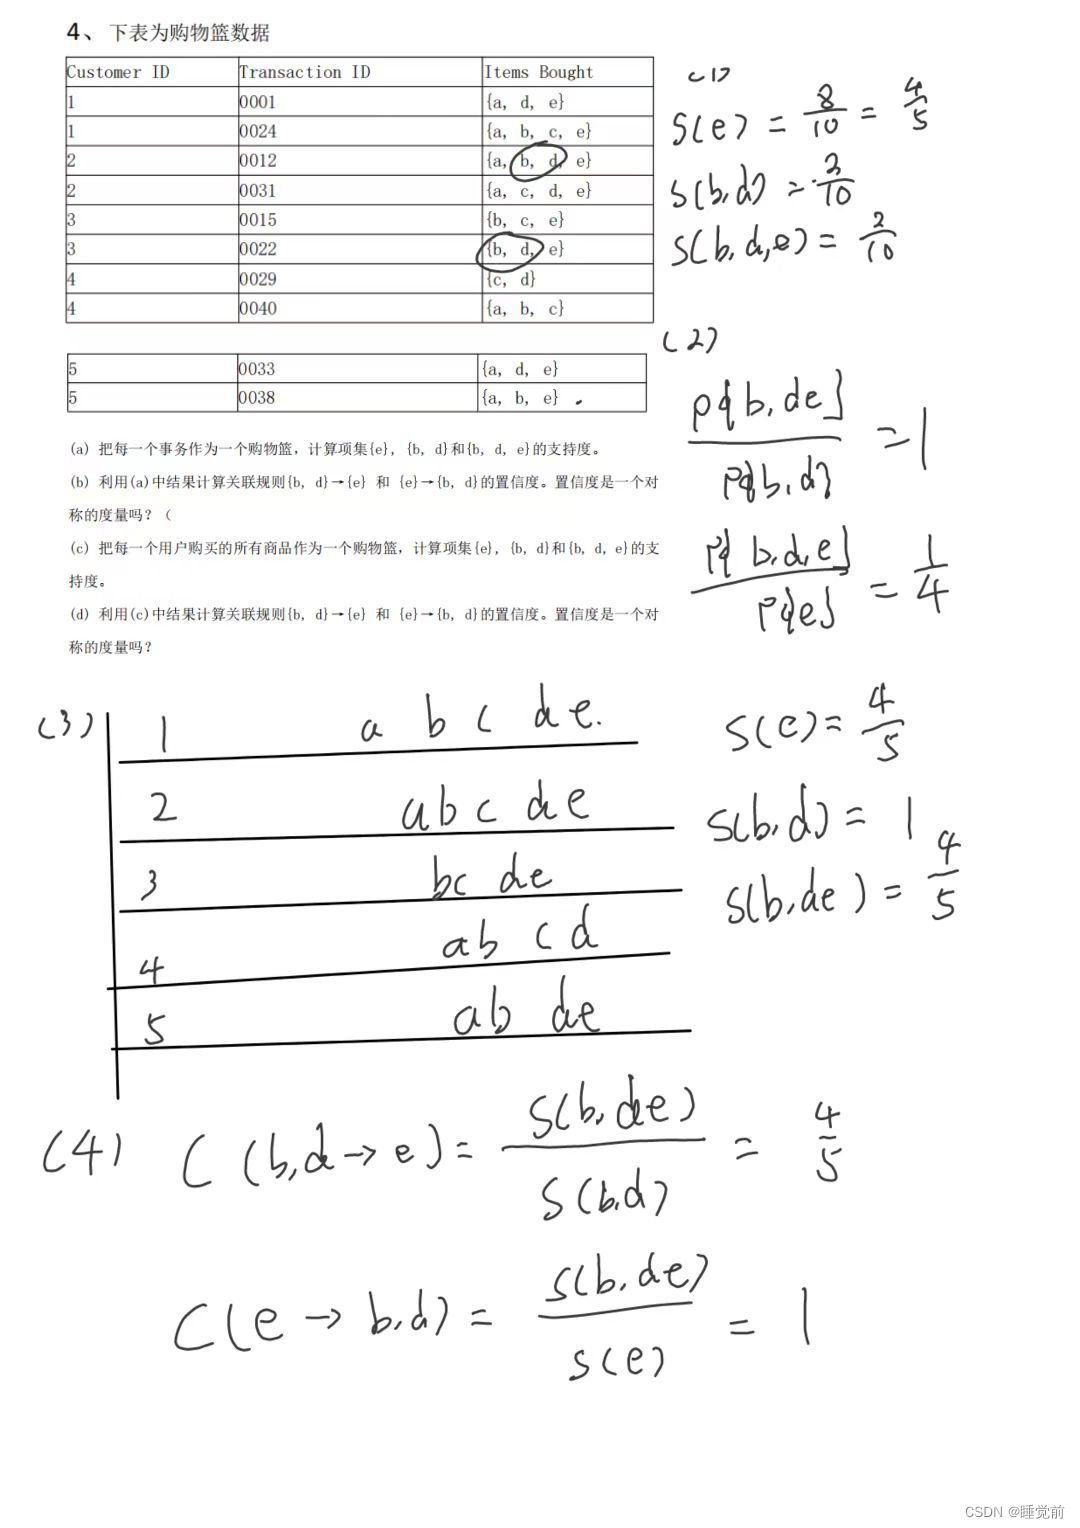 4、下表为购物篮数据
Customer ID Transaction ID Items Bought
1 0001 {a, d, e}
1 0024 {a, b, c, e}
2 0012 {a, b, d, e}
2 0031 {a, c, d, e}
3 0015 {b, c, e}
3 0022 {b, d, e}
4 0029 {c, d}
4 0040 {a, b, c}
5 0033 {a, d, e}
5 0038 {a, b, e}
(1)
S(e) = 8/10 = 4/5
S(b,d) = 2/10
S(b,d,e) = 2/10
(2)
P{b,de} / P{b,d} = 1
P{b,d,e} / P{e} = 1/4
(a) 把每一个事务作为一个购物篮，计算项集{e}, {b, d}和{b, d, e}的支持度。
(b) 利用(a)中结果计算关联规则{b, d}→{e} 和 {e}→{b, d}的置信度。置信度是一个对
称的度量吗？（
(c) 把每一个用户购买的所有商品作为一个购物篮，计算项集{e}, {b, d}和{b, d, e}的支
持度。
(d) 利用(c)中结果计算关联规则{b, d}→{e} 和 {e}→{b, d}的置信度。置信度是一个对
称的度量吗？
(3)
1 a b c d e.
2 a b c d e
3 b c d e
4 a b c d
5 a b d e
S(e) = 4/5
S(b,d) = 1
S(b,de) = 4/5
(4) C(b,d→e) = S(b,de) / S(b,d) = 4/5
C(e→b,d) = S(b,de) / S(e) = 1
CSDN @睡觉前